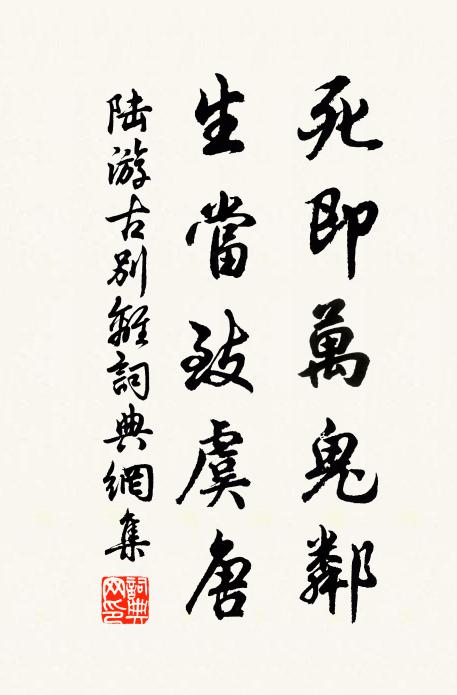 死即萬鬼鄰
生當致虞唐
陆游古别離詞典網集
詞典網印